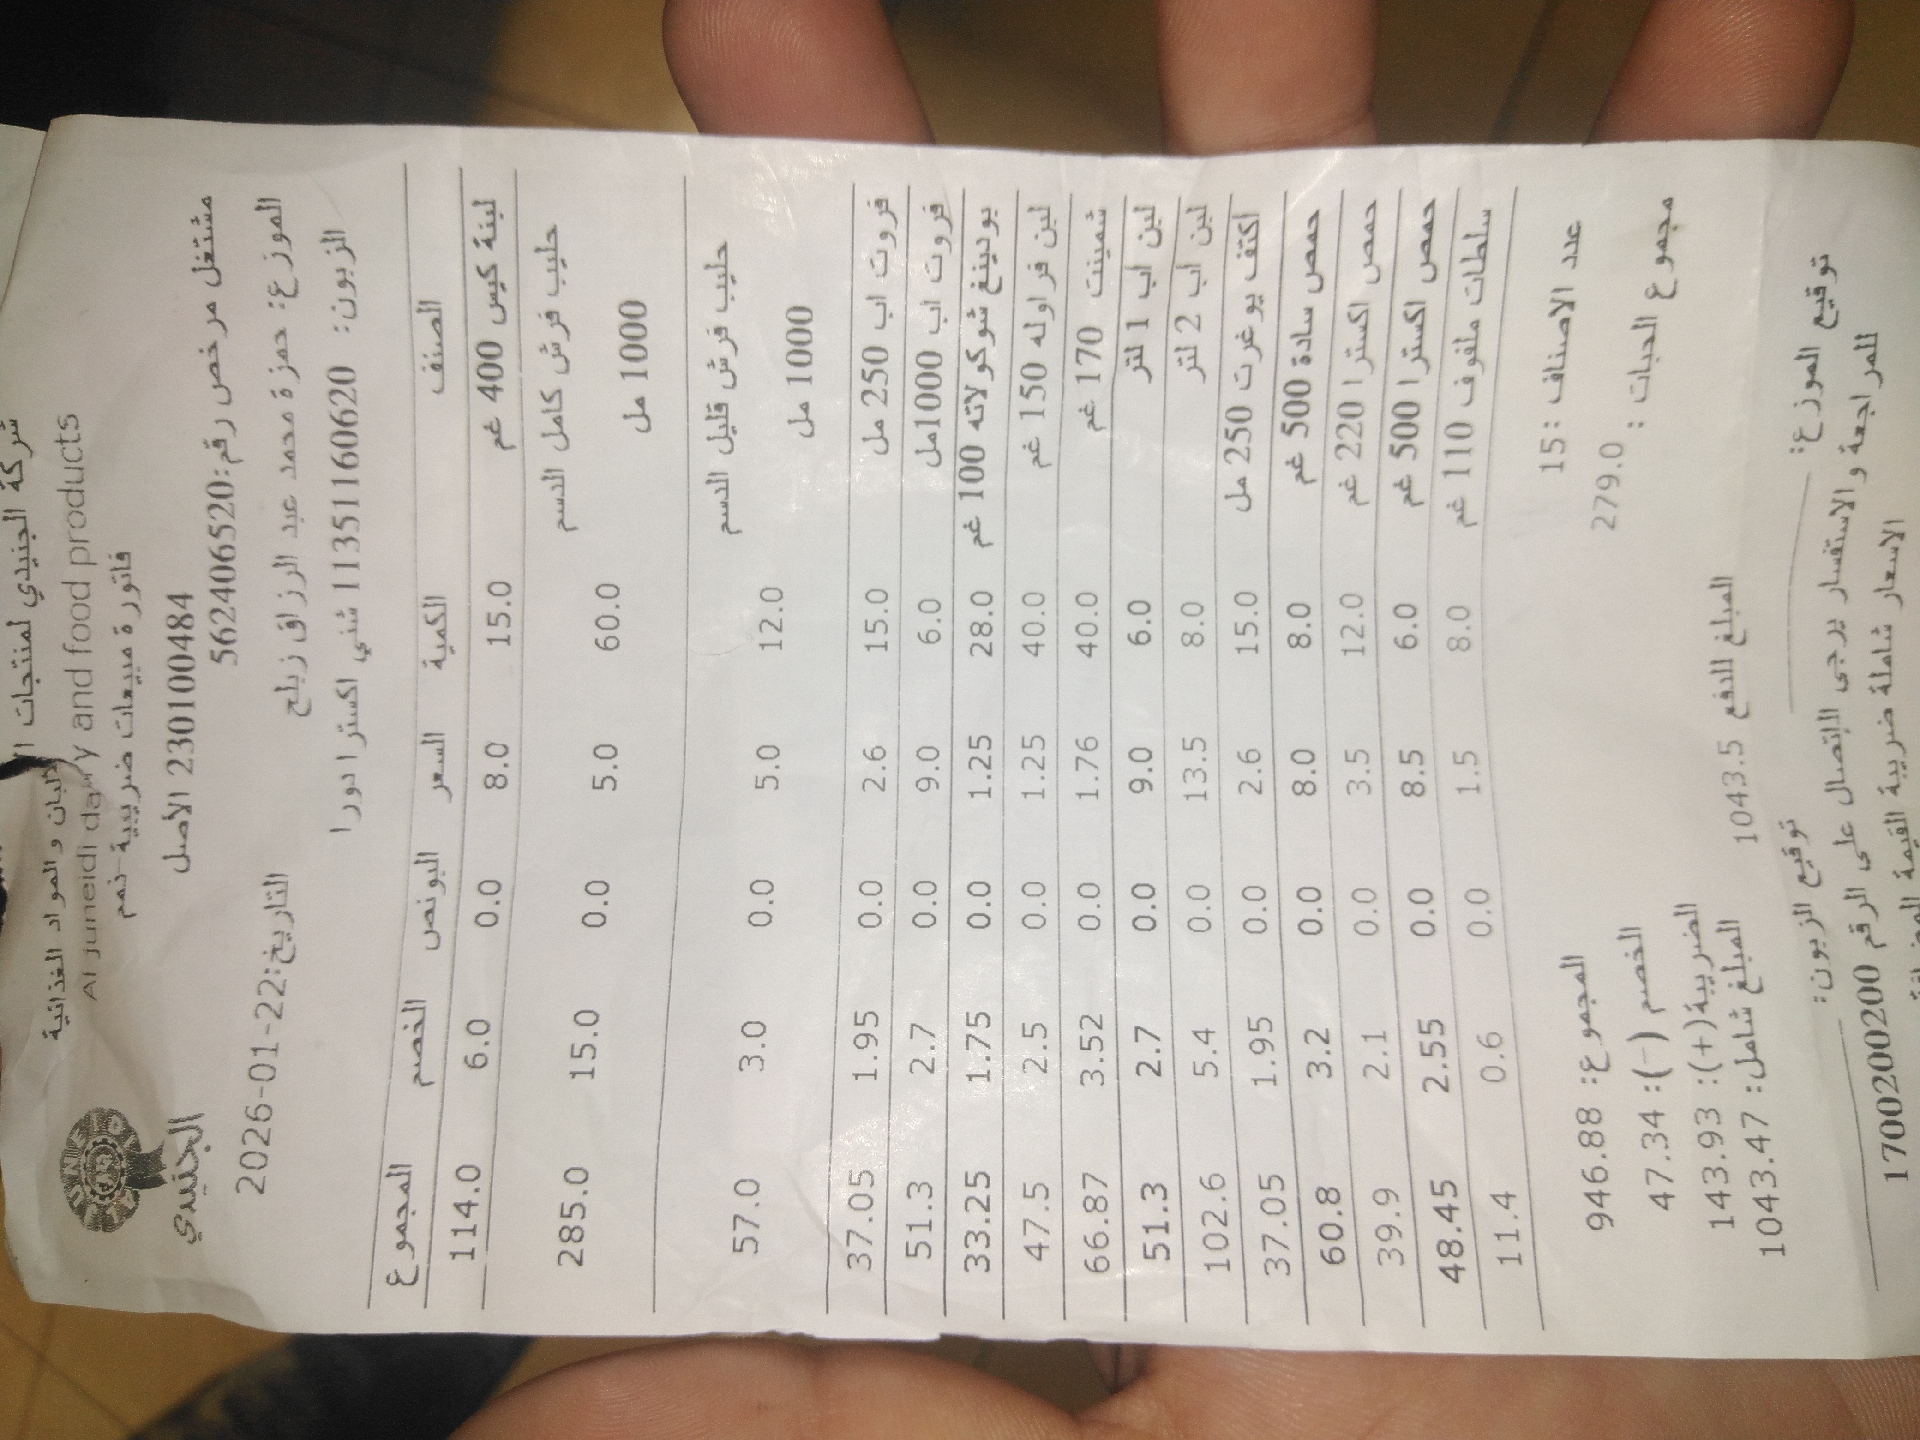 شركة الجنيدي لمنتجات
الألبان والمواد الغذائية
Al juneidi dairy and food products
فاتورة مبيعات ضريبية-نمم
JUNEIDI
الجنيدي
230100484 الأصل
مشتغل مرخص رقم:562406520
التاريخ:22-01-2026
الموزع: حمزة محمد عبد الرزاق زبلح
الزبون: 11351160620 شني اكسترا دورا
الصنف الكمية السعر البونص الخصم المجموع
لبنة كيس 400 غم 15.0 8.0 0.0 6.0 114.0
حليب فرش كامل الدسم 60.0 5.0 0.0 15.0 285.0
1000 مل
حليب فرش قليل الدسم 12.0 5.0 0.0 3.0 57.0
1000 مل
فروت اب 250 مل 15.0 2.6 0.0 1.95 37.05
فروت اب 1000مل 6.0 9.0 0.0 2.7 51.3
بودينغ شوكولاته 100 غم 28.0 1.25 0.0 1.75 33.25
لبن فراوله 150 غم 40.0 1.25 0.0 2.5 47.5
شمينت 170 غم 40.0 1.76 0.0 3.52 66.87
لبن اب 1 لتر 6.0 9.0 0.0 2.7 51.3
لبن اب 2 لتر 8.0 13.5 0.0 5.4 102.6
اكتف يوغرت 250 مل 15.0 2.6 0.0 1.95 37.05
حمص سادة 500 غم 8.0 8.0 0.0 3.2 60.8
حمص اكسترا 220 غم 12.0 3.5 0.0 2.1 39.9
حمص اكسترا 500 غم 6.0 8.5 0.0 2.55 48.45
سلطات ملفوف 110 غم 8.0 1.5 0.0 0.6 11.4
عدد الاصناف :15
المجموع: 946.88
مجموع الحبات : 279.0
الخصم (-): 47.34
الضريبة(+): 143.93
المبلغ شامل: 1043.47
المبلغ للدفع 1043.5
توقيع الموزع:
توقيع الزبون:
للمراجعة والاستفسار يرجى الإتصال على الرقم 1700200200
الاسعار شاملة ضريبة القيمة المضافة